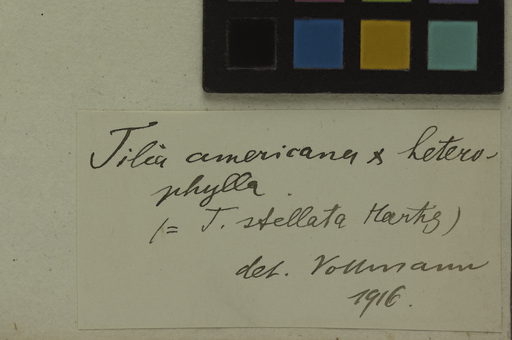 Tilia americana x hetero-
phylla.
(= T. stellata Hartig)
det. Vollmann
1916.